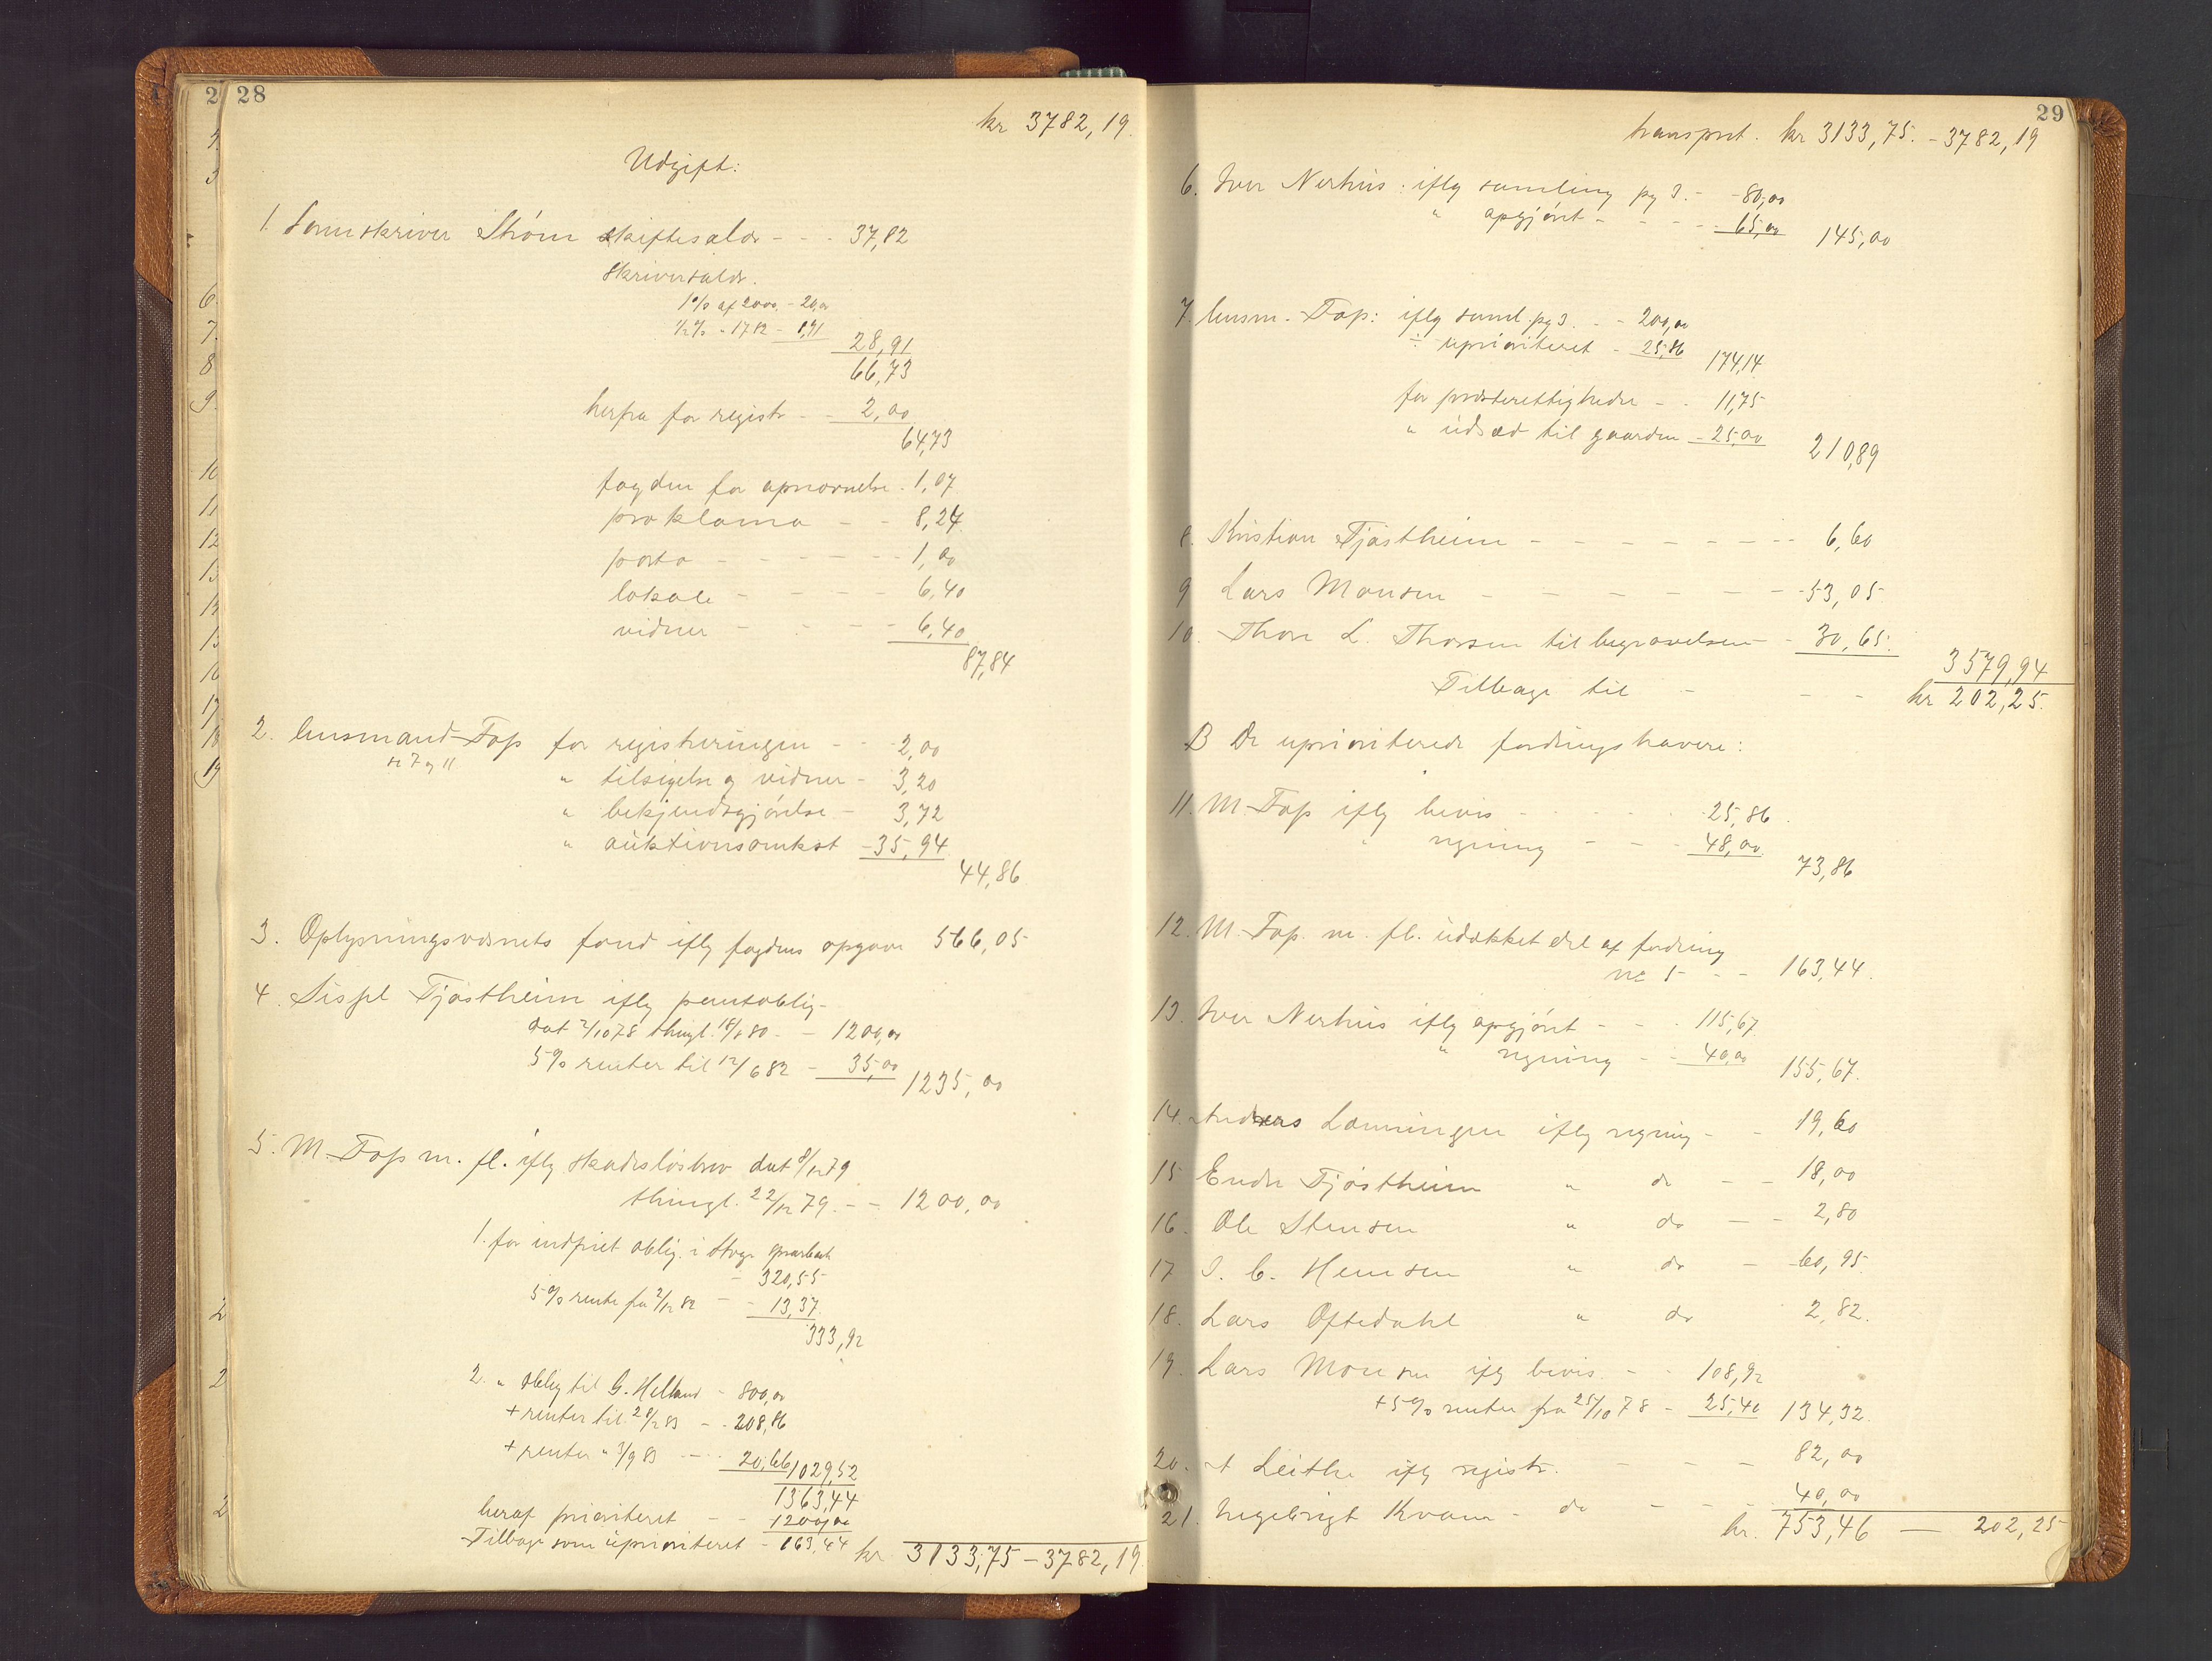 28
kr 3782,19.
Udgift:
1. Sorenskriver Strøm skiftesalær - - - 37,82
skriversalær.
1% af 2000 - 20,00
½% " 1782 - 8,91
28,91
66,73
herfra for registr - - 2,00
64,73
fogden for opnævnelse - 1,07
proklama - - 8,24
porto - - - - - 1,00
lokale - - - - 6,40
vidner - - - - 6,40
87,84
2. lensmand Fop for registreringen - - 2,00
se 7 og 11
" tilsigelse og vidner - 3,20
" bekjendtgjørelse - 3,72
" auktionsomkost - 35,94
44,86
3. Oplysningsvæsnets fond iflg fogdens opgave 566,05
4. Sissel Tjøstheim iflg pantoblig-
dat 2/10 78 thingl. 18/ 80 - - 1200,00
5% renter til 12/6 82 - 35,00
1235,00
5. M. Fop m. fl. iflg skadesløsbrev dat 8/12 79
thingl. 22/12 79. - - 1200,00
1. for indfriet oblig. i Stvgr sparebank
- 320,55
5% rente fra 2/12 82 - - 13,37
333,92
2. " oblig til G. Helland - 800,00
+ renter til 28/2 83 - - 208,86
+ renter " 3/9 83 - - - 20,66
1029,52
1363,44
heraf prioriteret - - 1200,00
Tilbage som uprioriteret - 163,44
kr 3133,75 - 3782,19
29
transport. kr 3133,75. - 3782,19
6. Iver Nerhus: iflg samling pg 3. - - 80,00
" opgjort - - - - 65,00
145,00
7. lensm. Fop: iflg saml. pg 3. - - 200,00
÷ uprioriteret - 25,86
174,14
for presterettigheder - - 11,75
" udsæd til gaarden - 25,00
210,89
8. Kristian Tjøstheim - - - - - - - - 6,60
9 Lars Monsen - - - - - - - 53,05
10. Thore L. Thorsen til begravelsen - 30,65.
3579,94
Tilbage til - - - kr 202,25.
B De uprioriterede fordringshavere:
11. M. Fop iflg bevis - - - - 25,86.
" regning - - - 48,00
73,86
12. M. Fop. m. fl. udækket del af fordring
no 5 - - 163,44.
13. Iver Nerhus iflg opgjort - - - 115,67
" regning - - 40,00
155,67.
14. Andreas Lanningen iflg regning - - 19,60
15 Endre Tjøstheim " do - - 18,00
16. Ole Stensen " do - - 2,80
17 I. C. Hemsen " do - 60,95.
18. Lars Oftedahl " do 2,82.
19. Lars Monsen iflg bevis. - - 108,92
+ 5% renter fra 25/10 78 - 25,40
134,32.
20. A Leithe iflg registr. - - - 82,00
21. Ingebrigt Kvam - do - - - 40,00
kr. 753,46 — 202,25